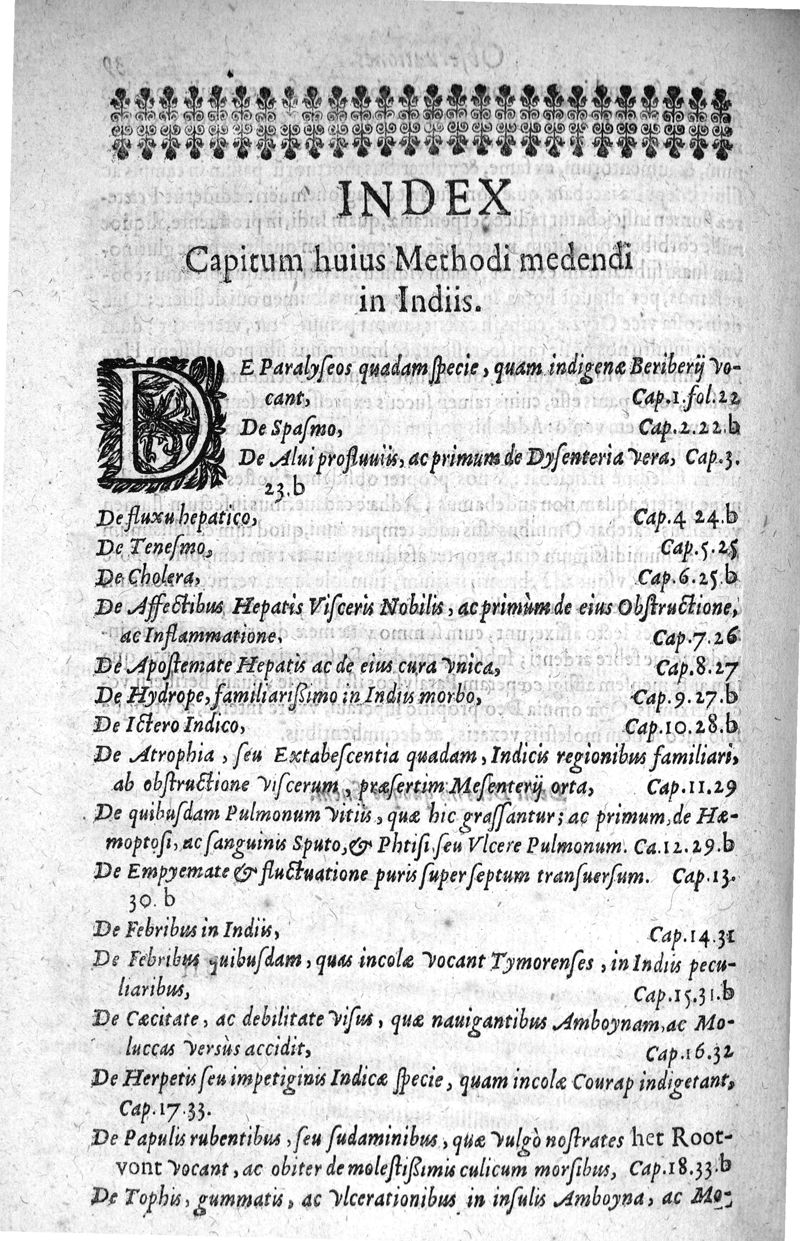 INDEX
Capitum huius Methodi medendi
in Indiis.
DE Paralyſeos quadam ſpecie, quam indigenæ Beriberij vo-
cant, Cap.1.fol.22
De Spaſmo, Cap.2.22.b
De Alui profluuiis, ac primum de Dyſenteria vera, Cap.3.
23.b
De fluxu hepatico, Cap.4 24.b
De Teneſmo, Cap.5.25
De Cholera, Cap.6.25.b
De Affectibus Hepatis Viſceris Nobilis, ac primùm de eius Obſtructione,
ac Inflammatione, Cap.7.26
De Apoſtemate Hepatis ac de eius cura vnica, Cap.8.27
De Hydrope, familiarißimo in Indiis morbo, Cap.9.27.b
De Ictero Indico, Cap.10.28.b
De Atrophia, ſeu Extabeſcentia quadam, Indicis regionibus familiari,
ab obſtructione viſcerum, præſertim Meſenterij orta, Cap.11.29
De quibuſdam Pulmonum vitiis, quæ hic graſſantur; ac primum, de Hæ-
moptoſi, ac ſanguinis Sputo, & Phtiſi, ſeu Vlcere Pulmonum. Ca.12.29.b
De Empyemate & fluctuatione puris ſuper ſeptum tranſuerſum. Cap.13.
30. b
De Febribus in Indiis, Cap.14.31
De Febribus quibuſdam, quas incolæ vocant Tymorenſes, in Indiis pecu-
liaribus, Cap.15.31.b
De Cæcitate, ac debilitate viſus, quæ nauigantibus Amboynam, ac Mo-
luccas versùs accidit, Cap.16.32
De Herpetis ſeu impetiginis Indicæ ſpecie, quam incolæ Courap indigetant,
Cap.17.33.
De Papulis rubentibus, ſeu ſudaminibus, quæ vulgò noſtrates het Root-
vont vocant, ac obiter de moleſtißimis culicum morſibus, Cap.18.33.b
De Tophis, gummatis, ac vlcerationibus in inſulis Amboyna, ac Mo-